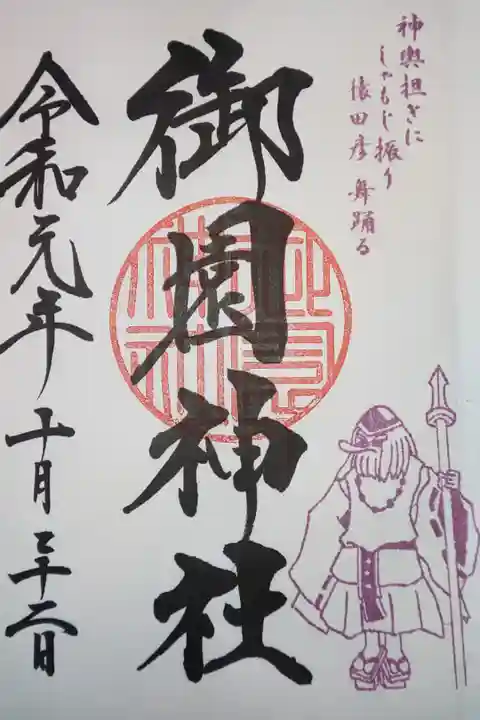 神輿担ぎに
しゃもじ振り
猿田彦 舞踊る
御園神社
令和元年 十月 二十二日